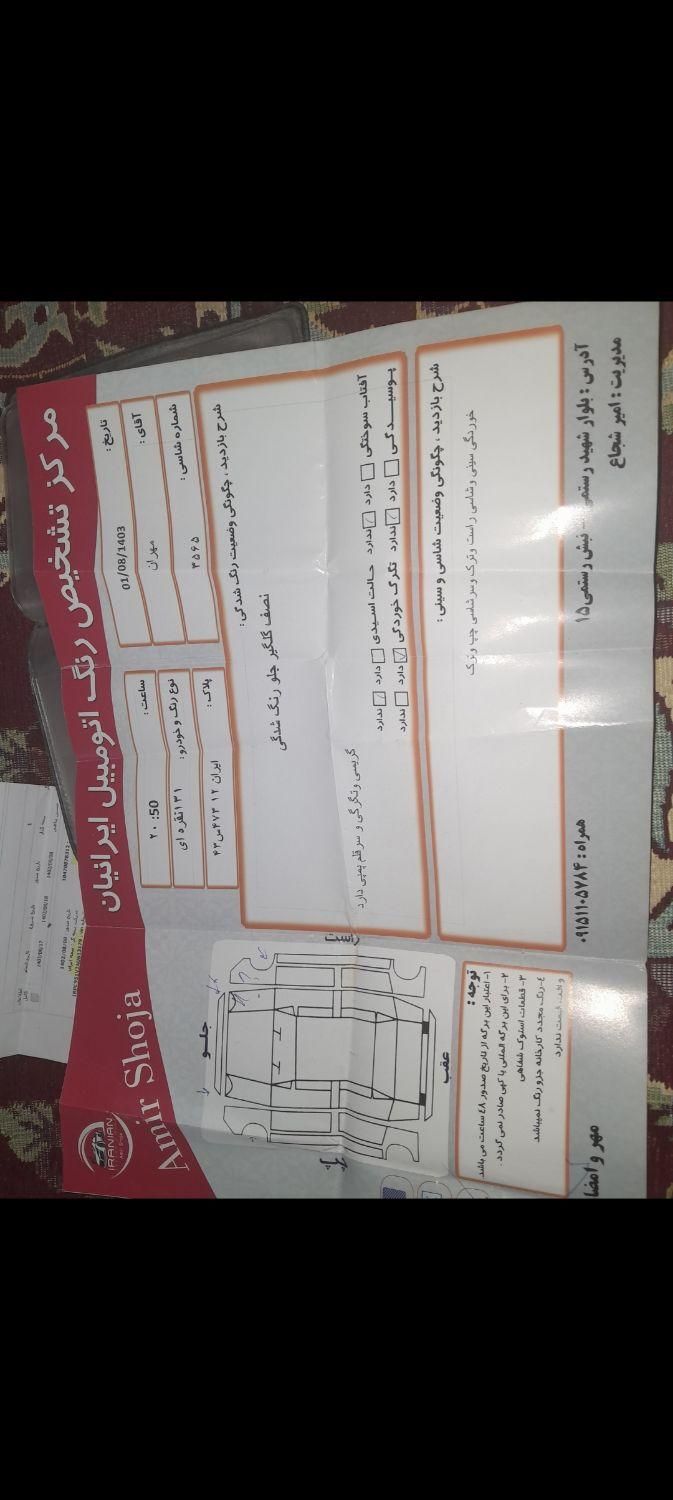 مرکز تشخیص رنگ اتومبیل ایرانیان
IRANIAN
Amir Shoja
تاریخ : 01/08/1403
ساعت : ۲۰:50
آقای : مهران
نوع رنگ و خودرو : ۱۳۱ نقره ای
شماره شاسی : ۳۵۶۵
پلاک : ایران ۱۲ ۴۷۳س۴۳
شرح بازدید ، چگونگی وضعیت رنگ شدگی :
نصف گلگیر جلو رنگ شدگی
گریسی وتگرگی و سر قلم پمپی دارد
آفتاب سوختگی دارد ندارد حالت اسیدی دارد ندارد
پوسیدگی دارد ندارد تگرگ خوردگی دارد ندارد
شرح بازدید ، چگونگی وضعیت شاسی و سینی :
خوردگی سینی وشاسی راست وترک وسر شاسی چپ وترک
جلو
راست
عقب
توجه :
۱- اعتبار این برگه از تاریخ صدور ٤٨ ساعت می باشد
۲- برای این برگه المثنی یا کپی صادر نمی گردد .
۳- قطعات استوک شفاهی
٤- رنگ مجدد کارخانه جزو رنگ نمیباشد
ندارد
آدرس : بلوار شهید رستمی - نبش رستمی ۱۵
همراه : ۰۹۱۵۱۱۰۵۷۸۴
مدیریت : امیر شجاع
مهر و امضا